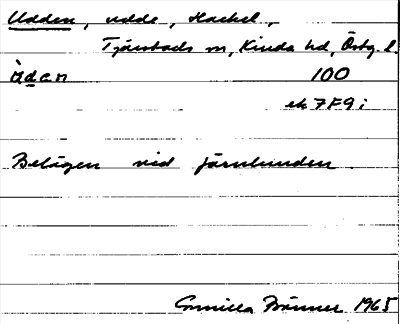 Udden, udde, Hackel,
Tjärstads sn, Kinda hd, Östg. l.
Ùdan 100
ek 7F9i
Belägen vid Järnlunden.
Gunilla Brånner 1965